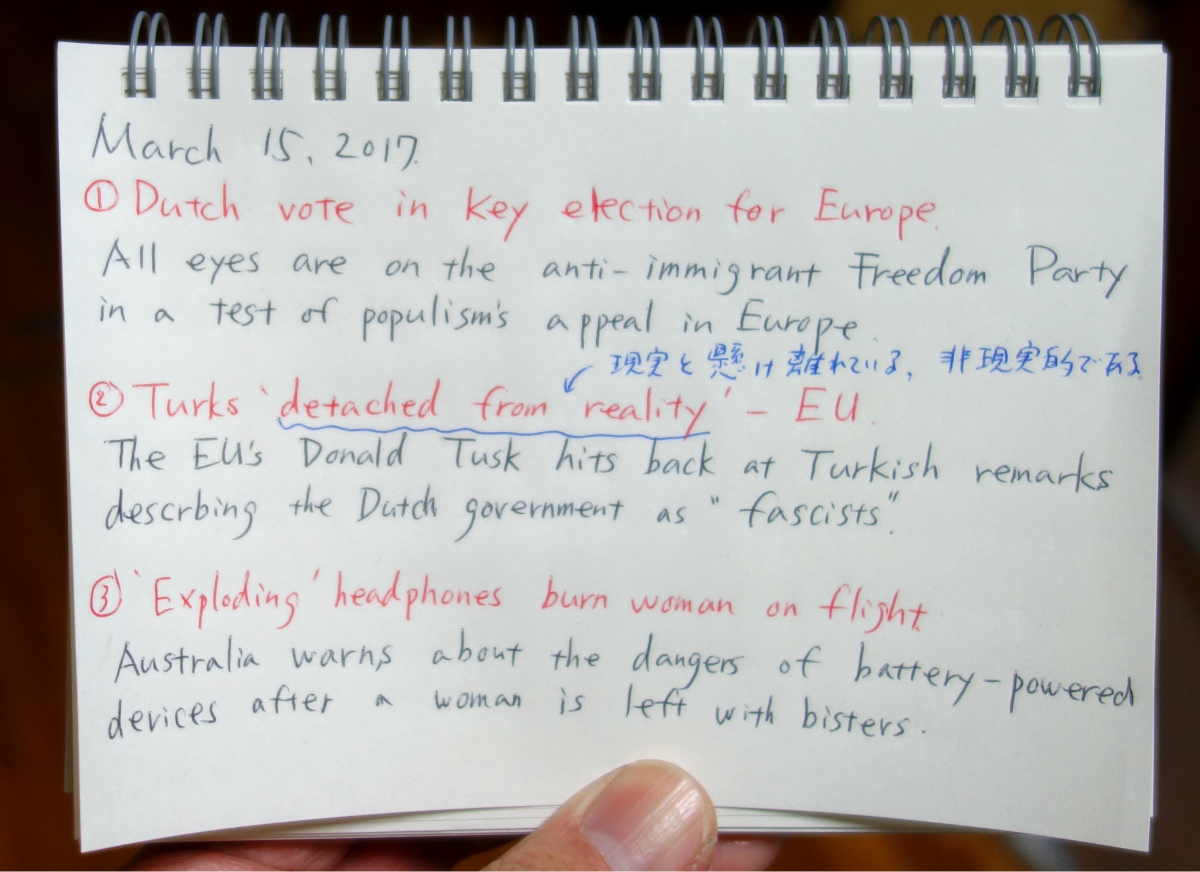 March 15, 2017.
① Dutch vote in key election for Europe.
All eyes are on the anti-immigrant Freedom Party
in a test of populism's appeal in Europe.
現実と懸け離れている，非現実的である
② Turks 'detached from reality' - EU.
The EU's Donald Tusk hits back at Turkish remarks
descrbing the Dutch government as "fascists".
③ 'Exploding' headphones burn woman on flight.
Australia warns about the dangers of battery-powered
devices after a woman is left with bisters.